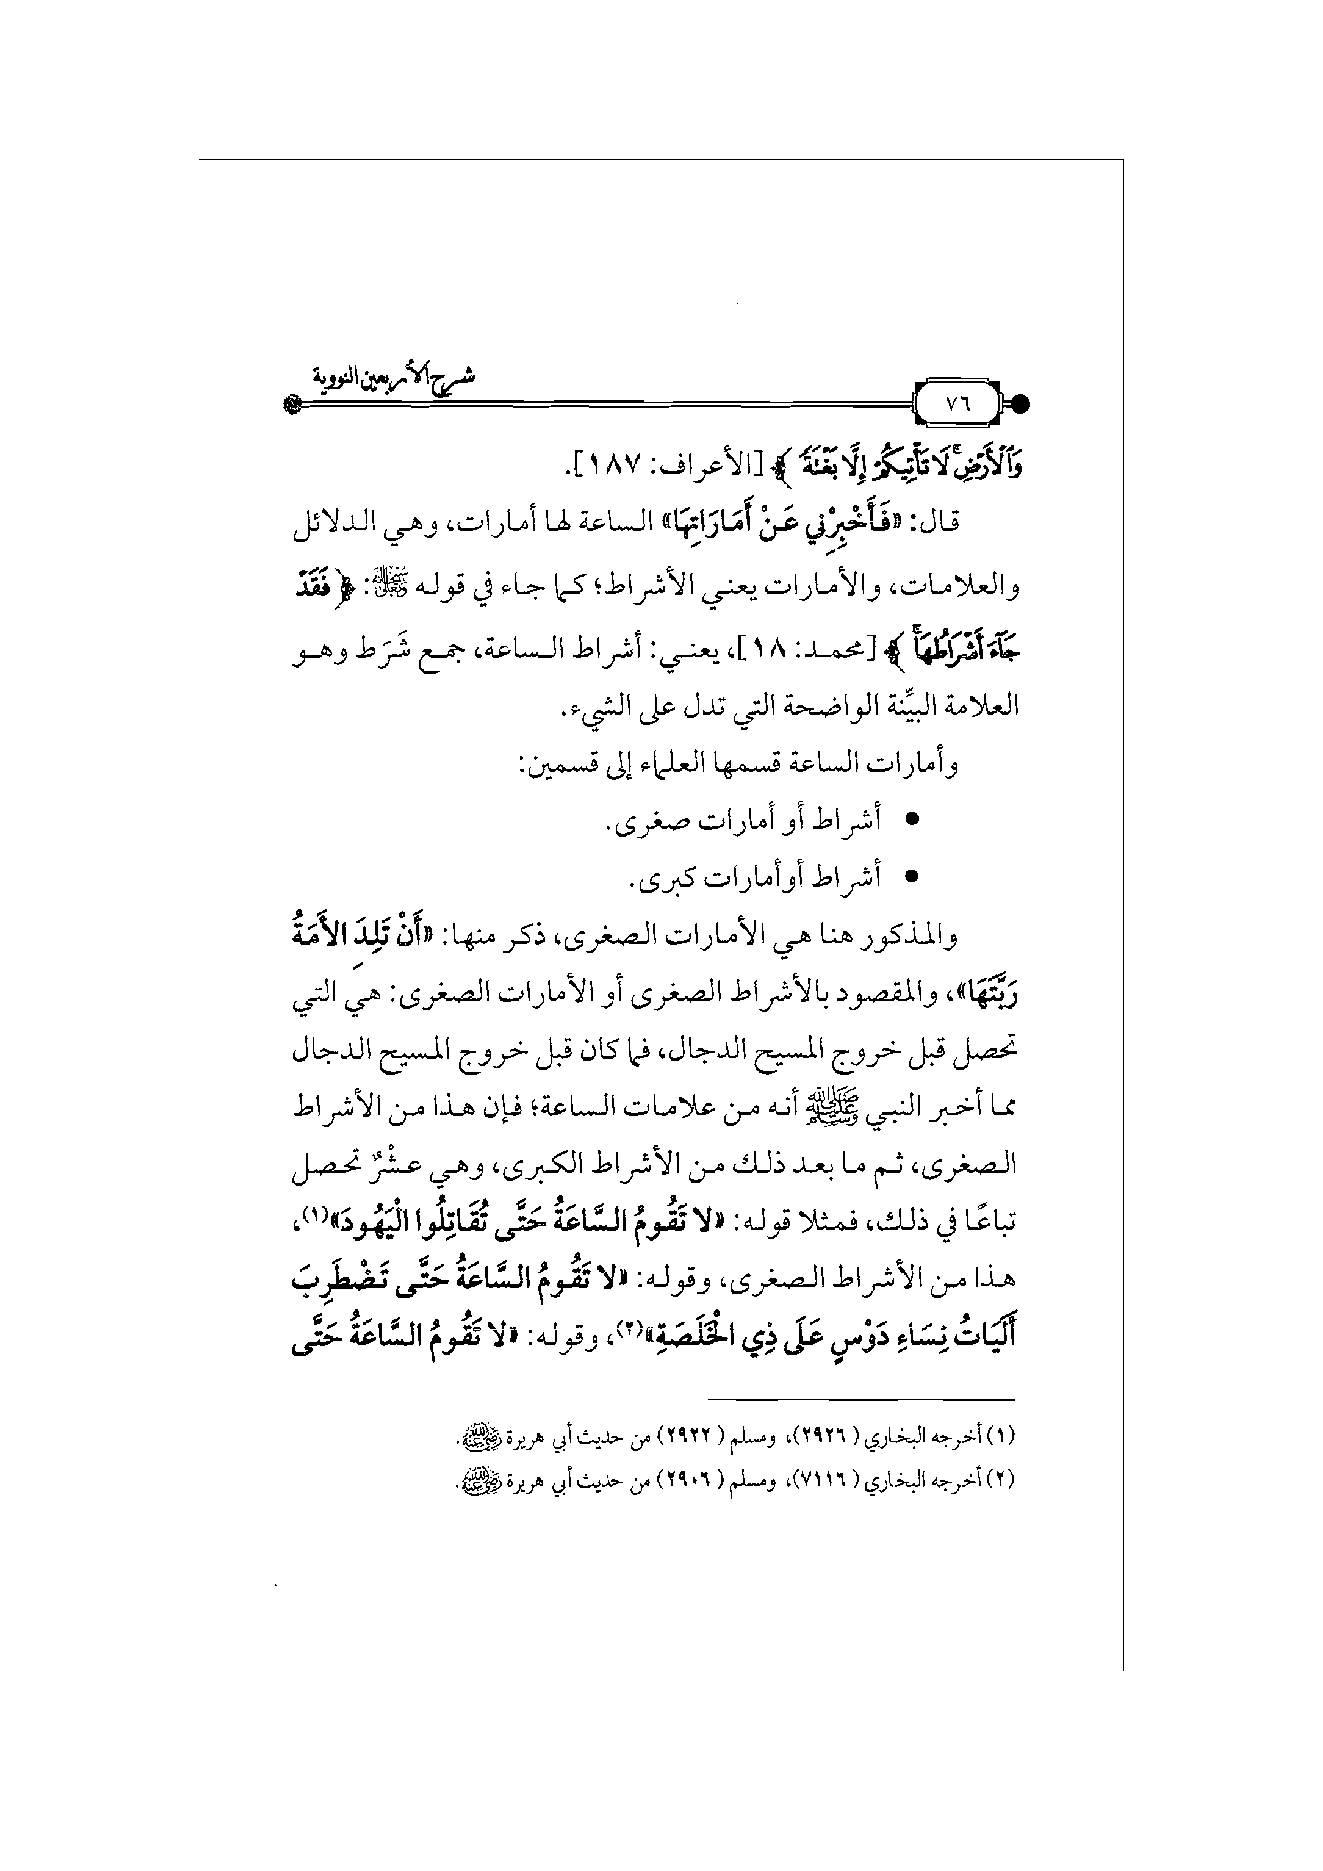 شرح الأربعين النووية
٧٦
وَٱلْأَرْضِ ۚ لَا تَأْتِيكُمْ إِلَّا بَغْتَةً ﴾ [الأعراف: ١٨٧].
قال: «فَأَخْبِرْنِي عَنْ أَمَارَاتِهَا» الساعة لها أمارات، وهي الدلائل
والعلامات، والأمارات يعني الأشراط؛ كما جاء في قوله: ﴿ فَقَدْ
جَآءَ أَشْرَاطُهَا ۚ ﴾ [محمد: ١٨]، يعني: أشراط الساعة، جمع شَرَط وهو
العلامة البيِّنة الواضحة التي تدل على الشيء.
وأمارات الساعة قسمها العلماء إلى قسمين:
● أشراط أو أمارات صغرى.
● أشراط أوأمارات كبرى.
والمذكور هنا هي الأمارات الصغرى، ذكر منها: «أَنْ تَلِدَ الأَمَةُ
رَبَّتَهَا»، والمقصود بالأشراط الصغرى أو الأمارات الصغرى: هي التي
تحصل قبل خروج المسيح الدجال، فما كان قبل خروج المسيح الدجال
مما أخبر النبي ﷺ أنه من علامات الساعة؛ فإن هذا من الأشراط
الصغرى، ثم ما بعد ذلك من الأشراط الكبرى، وهي عشْرٌ تحصل
تباعًا في ذلك، فمثلا قوله: «لا تَقُومُ السَّاعَةُ حَتَّى تُقَاتِلُوا الْيَهُودَ»(١)،
هذا من الأشراط الصغرى، وقوله: «لا تَقُومُ السَّاعَةُ حَتَّى تَضْطَرِبَ
أَلَيَاتُ نِسَاءِ دَوْسٍ عَلَى ذِي الْخَلَصَةِ»(٢)، وقوله: «لا تَقُومُ السَّاعَةُ حَتَّى
(١) أخرجه البخاري (٢٩٢٦)، ومسلم (٢٩٢٢) من حديث أبي هريرة رضي الله عنه.
(٢) أخرجه البخاري (٧١١٦)، ومسلم (٢٩٠٦) من حديث أبي هريرة رضي الله عنه.